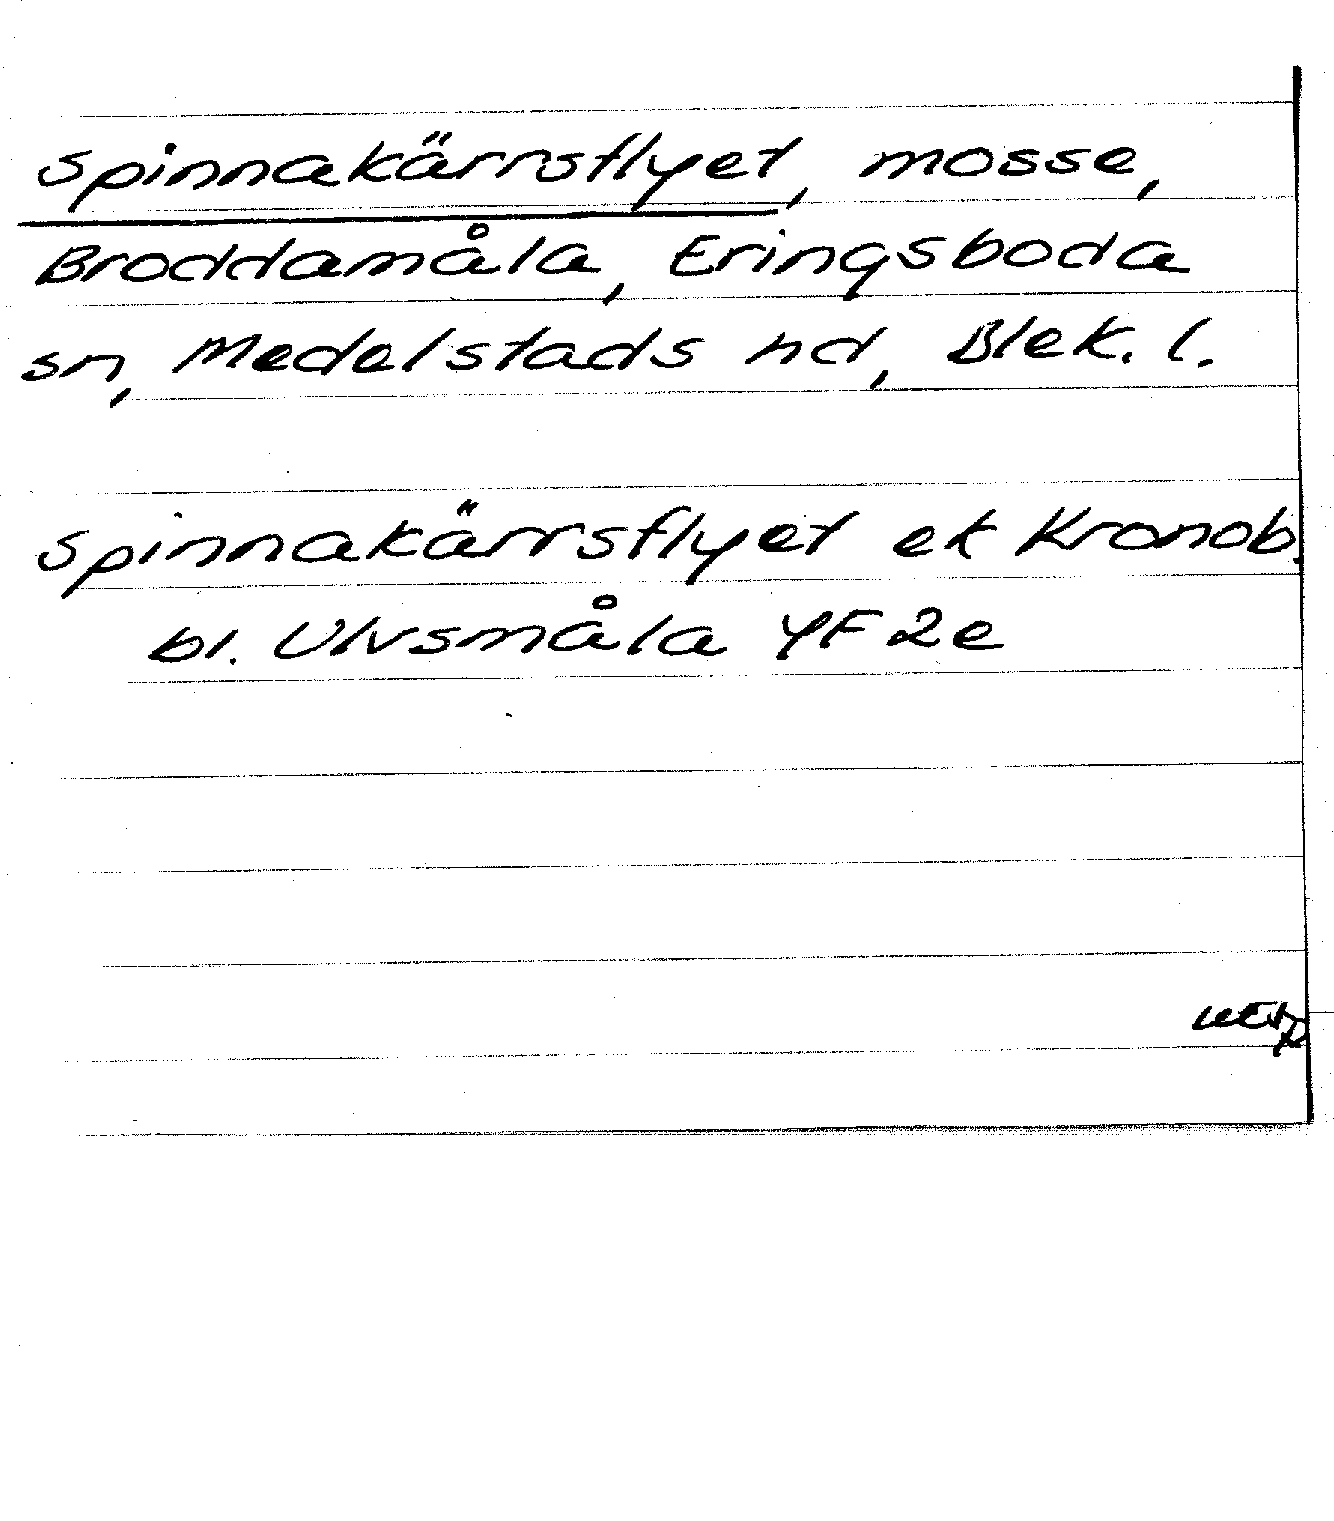 Spinnakärrsflyet, mosse,
Broddamåla, Eringsboda
sn, Medelstads hd, Blek. l.
Spinnakärrsflyet ek Kronob.
bl. Ulvsmåla YF2e